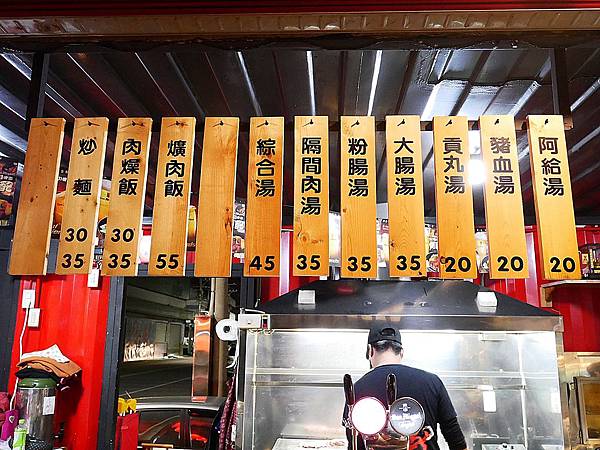 炒麵
30
35
肉燥飯
30
35
爌肉飯
55
綜合湯
45
隔間肉湯
35
粉腸湯
35
大腸湯
35
貢丸湯
20
豬血湯
20
阿給湯
20